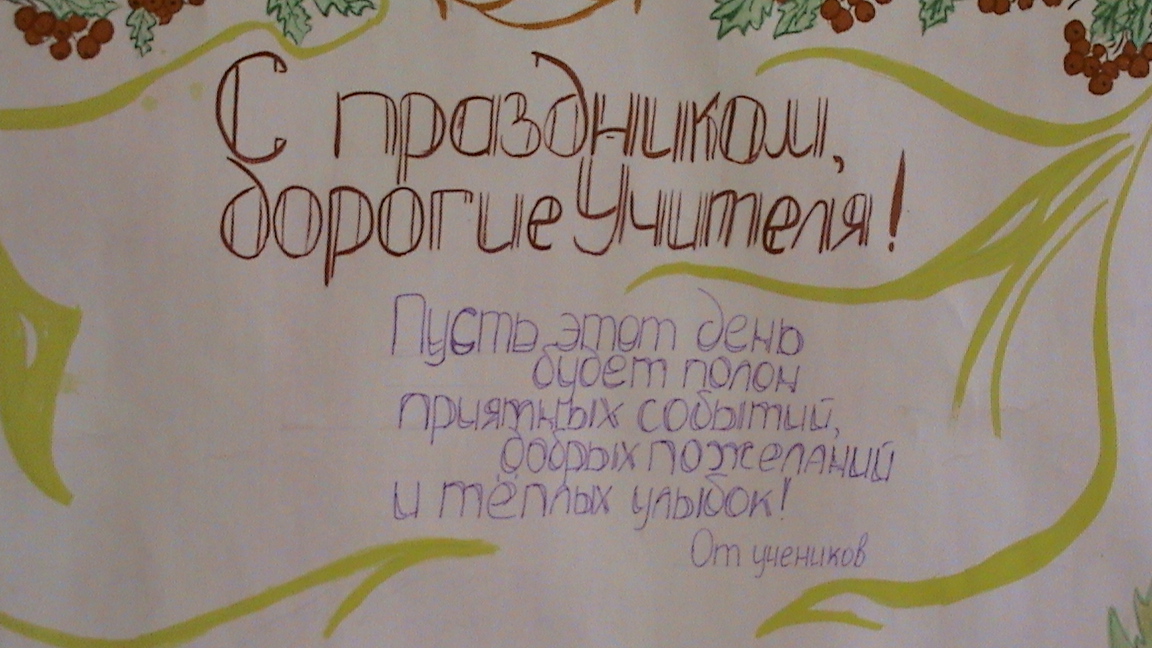 С праздником,
дорогие Учителя!
Пусть этот день
будет полон
приятных событий,
добрых пожеланий
и тёплых улыбок!
От учеников